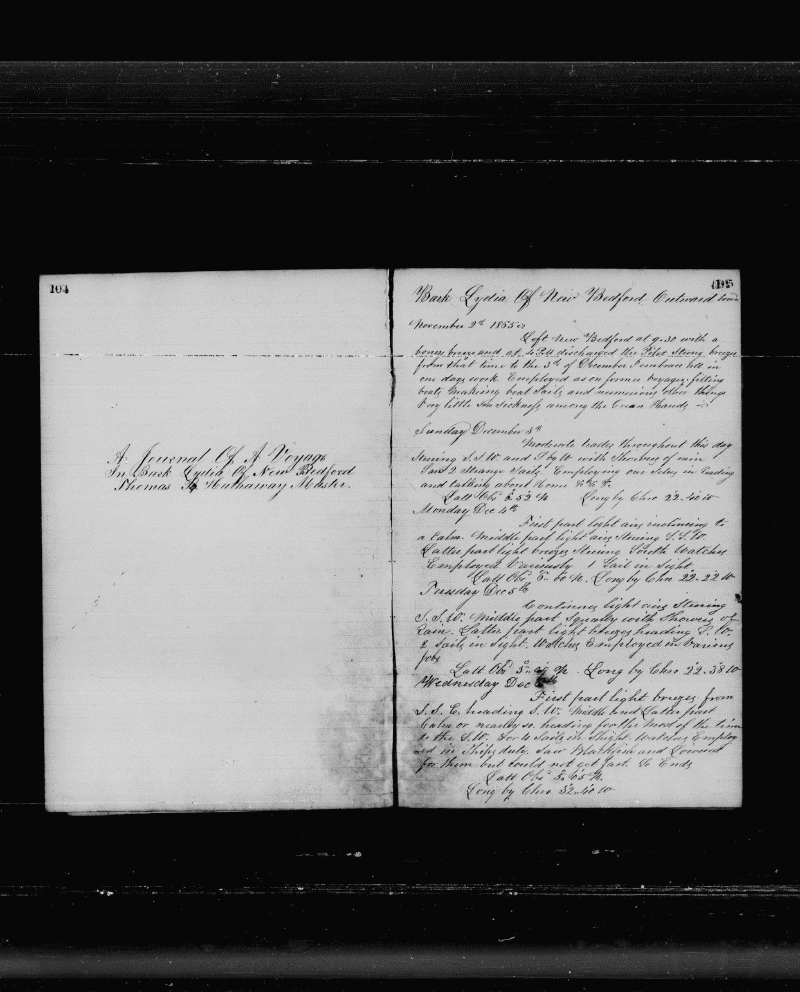 104
A Journal Of A Voyage
In Bark Lydia Of New Bedford
Thomas B Hathaway Master.
105
Bark Lydia Of New Bedford Outward bound
November 2d 1855
Left New Bedford at 9.30 with a
breeze and at 4 P.M discharged the Pilot Strong breeze
from that time to the 3d of December I embrace all in
one days work. Employed as on former voyages fitting
boats making boat Sails and numerous other things
Very little Sea Sickness among the Green Hands
Sunday December 3d
Moderate trades throughout this day
Steering S.S.W. and S by W with Showers of rain
Saw 2 Strange Sails Employing our Selves in reading
and talking about Home &c &c
Latt Obs 5.52 N Long by Chro 22.40 W
Monday Dec 4th
First part light airs inclining to
a Calm. Middle part light airs Steering S.S.W.
Latter part light breezes Steering South Watches
Employed Variously 1 Sail in Sight.
Latt Obs 5. N. Long by Chro 22.22 W
Tuesday Dec 5th
Continues light airs Steering
S.S.W. Middle part Squally with Showers of
Rain. Latter part light breezes heading S.W.
2 Sails in Sight. Watches Employed in Various
jobs
Latt Obs 5 N. Long by Chro 22.38 W
Wednesday Dec 6th
First part light breezes from
S.S.E. heading S.W. Middle and Latter part
Calm or nearly so. heading for the most of the time
to the S.W. 3 or 4 Sails in Sight. Watches Employ
ed in Ships duty. Saw Blackfish and Lowered
for them but could not get fast. So Ends
Latt Obs 5. N.
Long by Chro 22.40 W